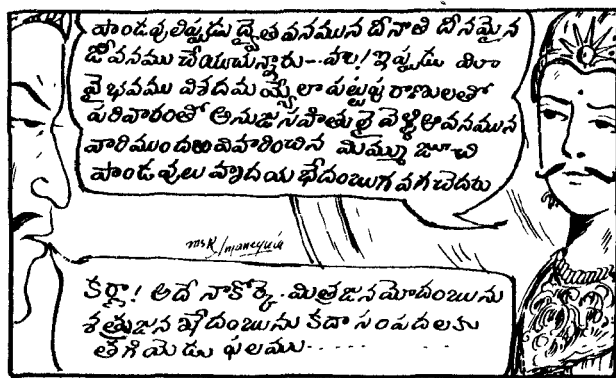 పాండవులిప్పుడు ద్వైత వనమున దీనాతి దీనమైన
జీవనము చేయుచున్నారు--రాజా! ఇప్పుడు మీరు
వైభవము విశదమయ్యేలా పట్టపు రాణులతో
పరివారంతో అనుజసహితులై వెళ్ళి ఆవనమున
వారిముందర వివారించిన మిమ్ము జూచి
పాండవులు హృదయ భేదంబుగ వగచెదరు
కర్ణా! అదే నాకోర్కె. మిత్రజనమోదంబును
శత్రుజన ఖేదంబును కదా సంపదలకు
తగియెడు ఫలము......